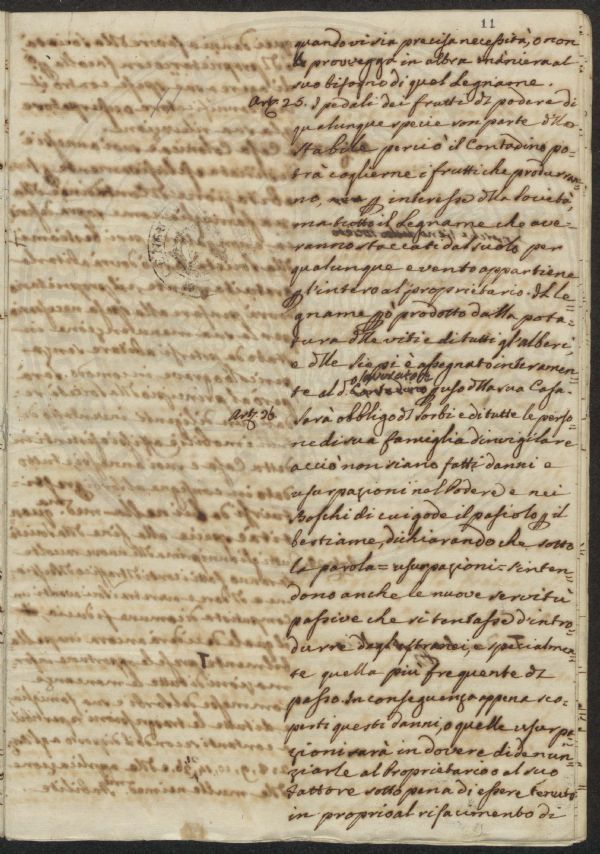 11
quando vi sia precisa necessità, o non
provvegga in altra maniera al
suo bisogno di quel Legname.
Art. 25. I pedali dei frutti del podere di
qualunque specie son parte dello
Stabile perciò il Contadino po-
trà coglierne i frutti che produrran-
no, interesse della Società,
ma tutto il Legname che ave-
ranno staccati dal suolo per
qualunque evento appartiene
l'intero al proprietario. Il Le-
gname però prodotto dalla pota-
tura delle viti e di tutti gl'alberi,
e delle siepi è assegnato interamen-
Lavoratore
te al do Contadino uso della sua Casa.
Art. 26 Sarà obbligo del Sorbi e di tutte le perso-
ne di sua famiglia d'invigilare
acciò non siano fatti danni e
usurpazioni nel Podere e nei
Boschi di cui gode il pasciolo il
bestiame, dichiarando che sotto
la parola = usurpazioni = s'inten-
dono anche le nuove servitù
passive che si tentasse d'intro-
durre dagl'estranei, e specialmen-
te quella più frequente del
passo. In conseguenza appena sco-
perti questi danni, o quelle usurpa-
zioni sarà in dovere di denun-
ziarle al Proprietario o al suo
Fattore sotto pena di essere tenuto
in proprio al risarcimento di